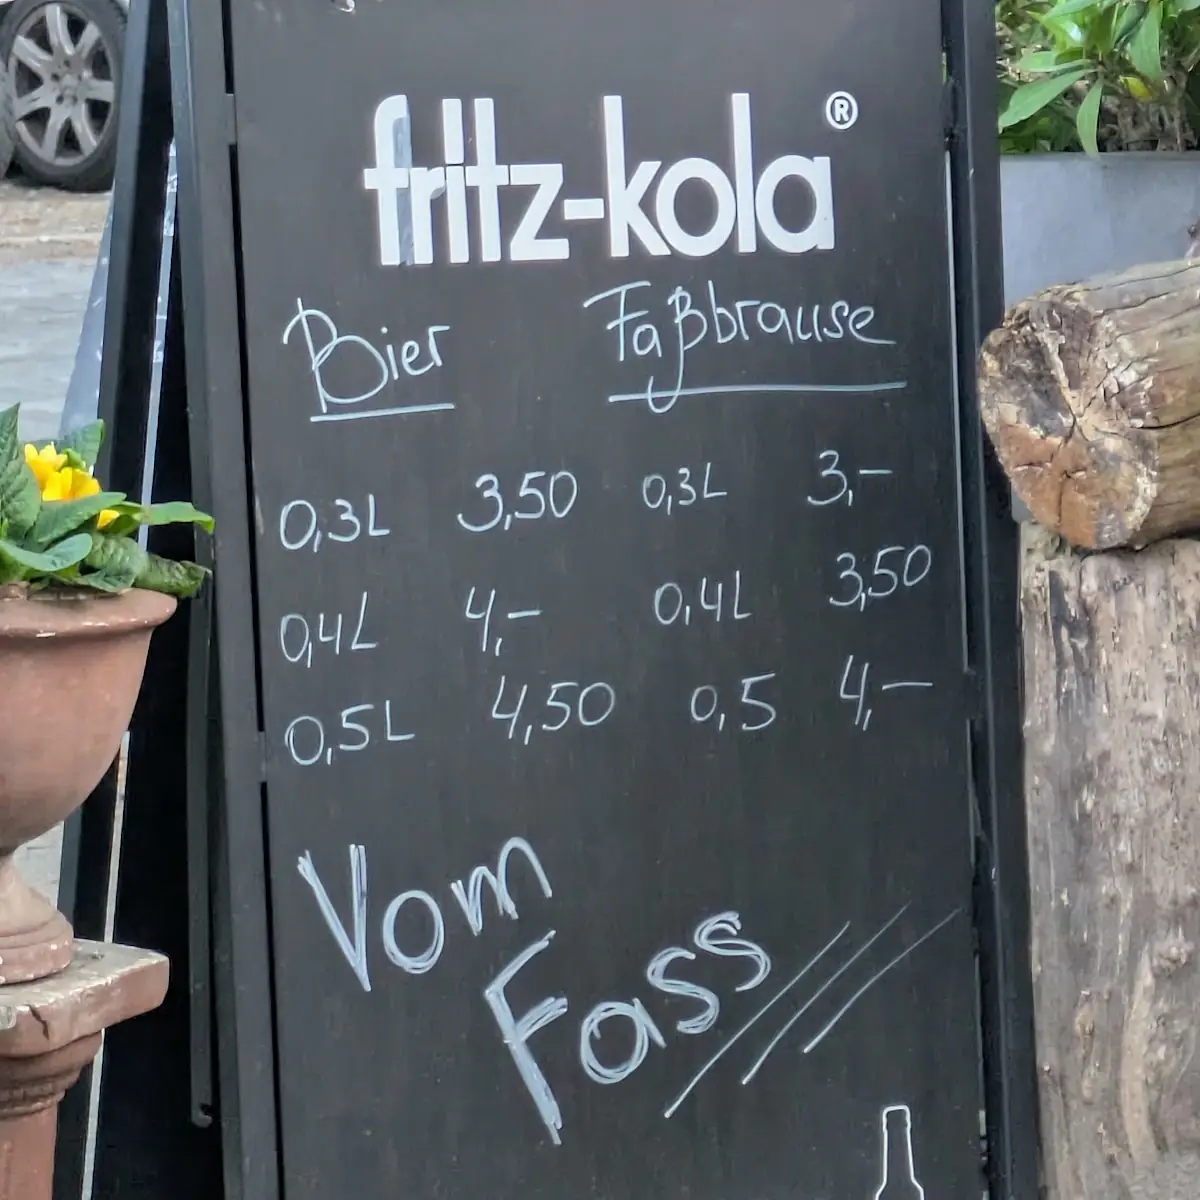 fritz-kola®
Bier Faßbrause
0,3L 3,50 0,3L 3,–
0,4L 4,– 0,4L 3,50
0,5L 4,50 0,5 4,–
Vom
Fass